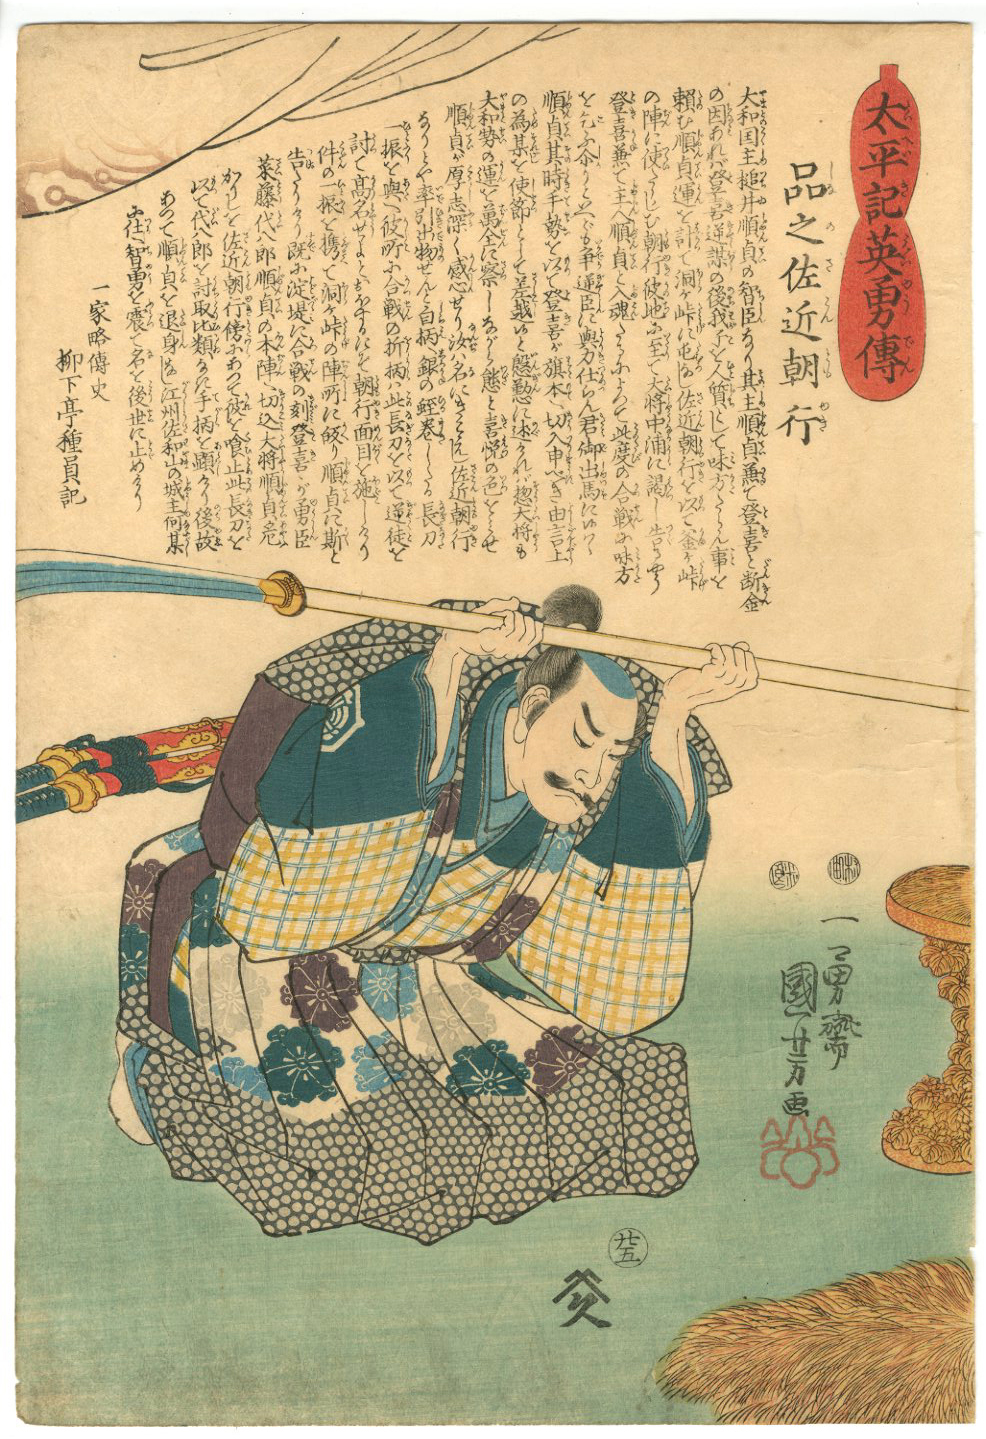 太平記英勇傳
品之佐近朝行
大和国主槌井順貞の智臣なり其主順貞兼て登喜と断金
の因あれバ登喜逆謀の後我子を人質にして味方たらん事を
頼む順貞運を計て洞ヶ峠に屯なし佐近朝行を以て釜ヶ峠
の陣に使たらしむ朝行彼地に至て大将中浦に謁し告るやう
登喜兼て主人順貞と入魂たるによつて此度の合戦に味方
を乞ふ令らくいへども争逆臣に與力仕らん君御出馬に
順貞其時手勢を以て登喜が旗本へ切入申べき由言上
の為某を使節として差越ゆと慇懃に述けれバ惣大将も
大和勢の運を萬全に察しながら態と喜悦の色を見せ
順貞が厚志深く感心せり汝ハ名にきこえし佐近朝行
なりとや率引出物せんと自柄銀の蛭巻したる長刀
一振を與へ役所に合戦の折柄ハ此長刀を以て逆徒を
討て高名せよと朝行面目を施しけり
件の一振を携て洞ヶ峠の陣所に皈り順貞に斯と
告けり既に淀堤に合戦の刻登喜が勇臣
菜藤代八郎順貞の本陣へ切込大将順貞危
かりしを佐近朝行傍にあつて彼を喰止此長刀を
以て代八郎を討取比類なき手柄を顕けり後故
あつて順貞を退身なし江州佐和山の城主何某
に仕へ智勇を震て名を後世に止めけり
一家略傳史
柳下亭種員記
一勇齋
國芳画
廿五